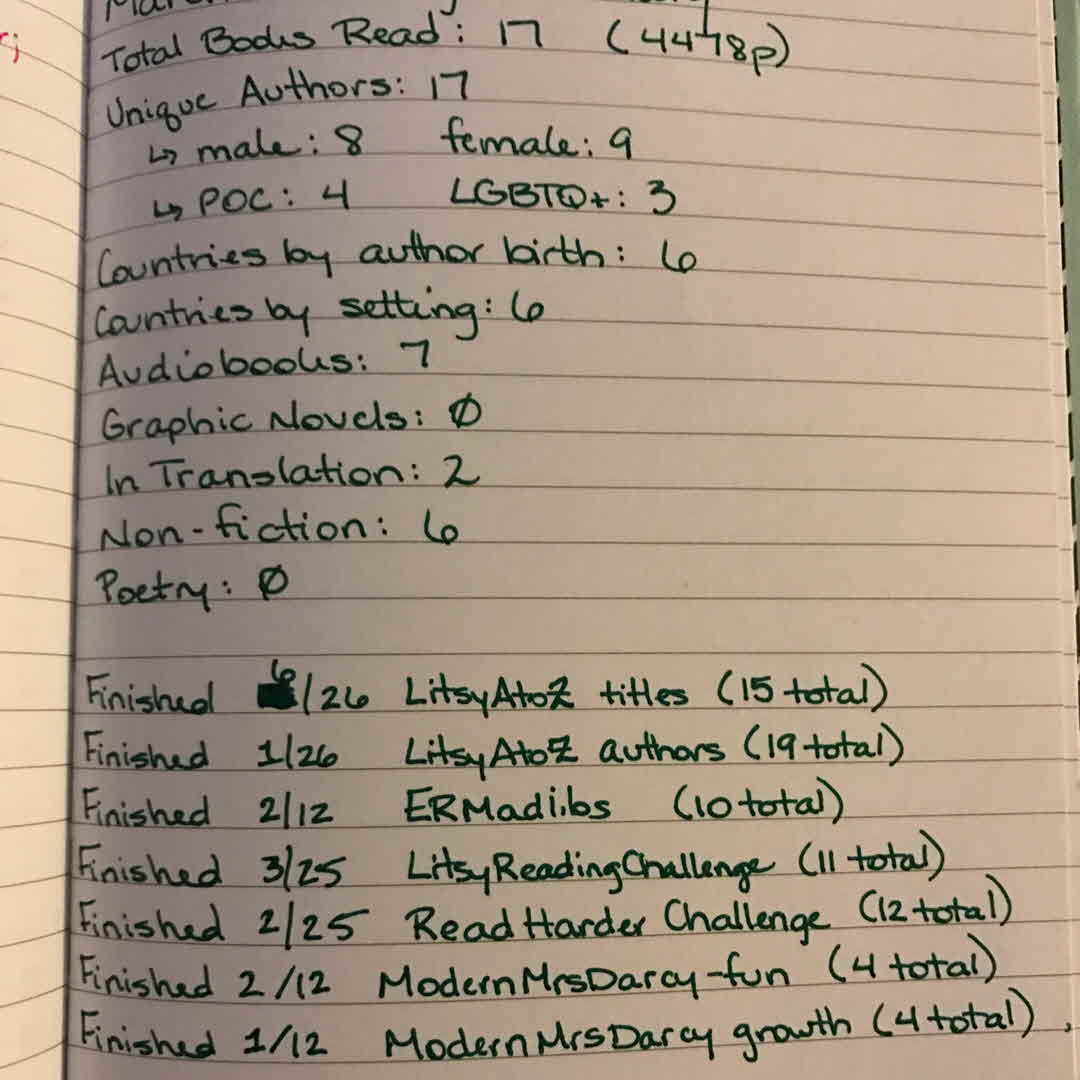 Total Books Read: 17 (4478p)
Unique Authors: 17
↳ male: 8 female: 9
↳ POC: 4 LGBTQ+: 3
Countries by author birth: 6
Countries by setting: 6
Audiobooks: 7
Graphic Novels: Ø
In Translation: 2
Non-fiction: 6
Poetry: Ø
Finished 6/26 LitsyAtoZ titles (15 total)
Finished 1/26 LitsyAtoZ authors (19 total)
Finished 2/12 ERMadlibs (10 total)
Finished 3/25 LitsyReadingChallenge (11 total)
Finished 2/25 ReadHarder Challenge (12 total)
Finished 2/12 ModernMrsDarcy-fun (4 total)
Finished 1/12 ModernMrsDarcy growth (4 total)